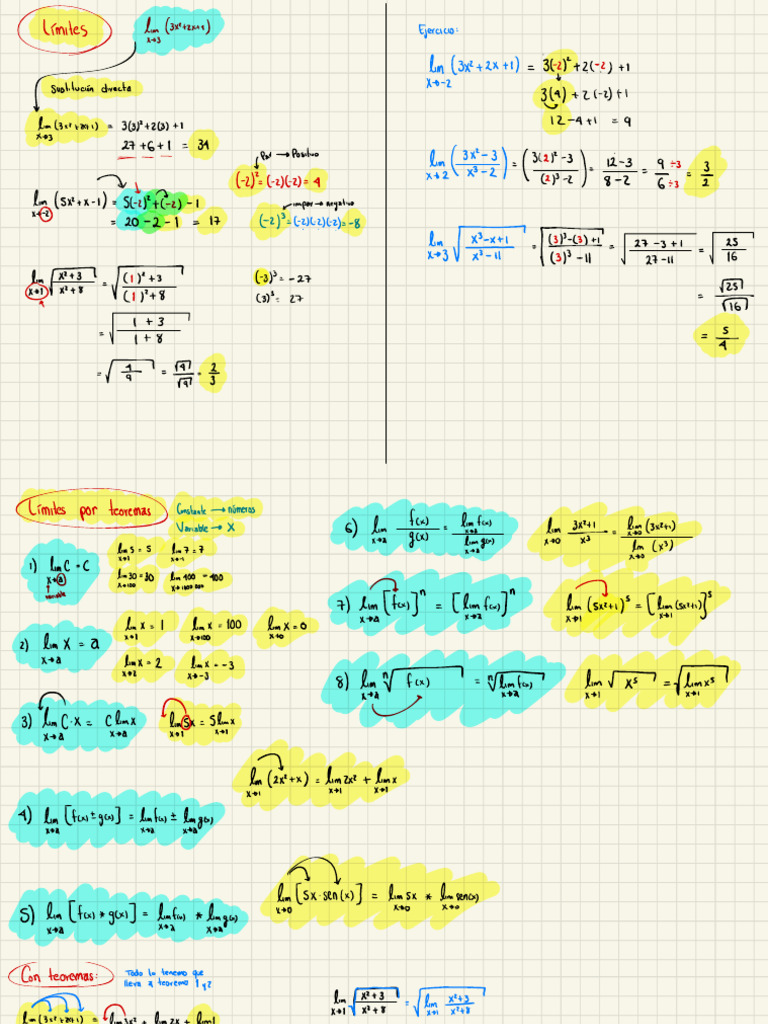 Límites
lim x→3 (3x²+2x+1)
Sustitución directa
lim x→3 (3x²+2x+1) = 3(3)²+2(3)+1
27+6+1 = 34
Par → Positivo
(-2)² = (-2)(-2) = 4
impar → negativo
(-2)³ = (-2)(-2)(-2) = -8
lim x→-2 (5x²+x-1) = 5(-2)²+(-2)-1
= 20-2-1 = 17
(-3)³ = -27
(3)³ = 27
lim x→1 √(x²+3 / x²+8) = √((1)²+3 / (1)²+8)
= √(1+3 / 1+8)
= √(4/9) = √4/√9 = 2/3
Ejercicio:
lim x→-2 (3x²+2x+1) = 3(-2)²+2(-2)+1
3(4)+2(-2)+1
12-4+1 = 9
lim x→2 (3x²-3 / x³-2) = (3(2)²-3 / (2)³-2) = 12-3 / 8-2 = 9/6 ÷3 ÷3 = 3/2
lim x→3 √(x³-x+1 / x³-11) = √((3)³-(3)+1 / (3)³-11) = √(27-3+1 / 27-11) = √(25/16)
= √25/√16
= 5/4
Límites por teoremas
Constante → números
Variable → X
1) lim x→a C = C
variable
lim x→2 5 = 5
lim x→-1 7 = 7
lim x→100 30 = 30
400 = 400
2) lim x→a X = a
lim x→1 X = 1
lim x→100 X = 100
lim x→0 X = 0
lim x→2 X = 2
lim x→-3 X = -3
3) lim x→a C·X = C lim x→a X
lim x→1 5X = 5 lim x→1 X
lim x→1 (2x²+x) = lim x→1 2x² + lim x→1 x
4) lim x→a [f(x) ± g(x)] = lim x→a f(x) ± lim x→a g(x)
lim x→0 [5x·sen(x)] = lim x→0 5x * lim x→0 sen(x)
5) lim x→a [f(x) * g(x)] = lim x→a f(x) * lim x→a g(x)
6) lim x→a f(x)/g(x) = lim x→a f(x) / lim x→a g(x)
lim x→0 3x²+1 / x³ = lim x→0 (3x²+1) / lim x→0 (x³)
7) lim x→a [f(x)]ⁿ = [lim x→a f(x)]ⁿ
lim x→1 (5x²+1)⁵ = [lim x→1 (5x²+1)]⁵
8) lim x→a ⁿ√f(x) = ⁿ√(lim x→a f(x))
lim x→1 √x⁵ = √(lim x→1 x⁵)
Con teoremas:
Todo lo tenemos que
lleva a teorema 1 y 2
lim (3x²+2x+1) = lim 3x² + lim 2x + lim 1
lim x→1 √(x²+3 / x²+8) = √(lim x→1 x²+3 / x²+8)